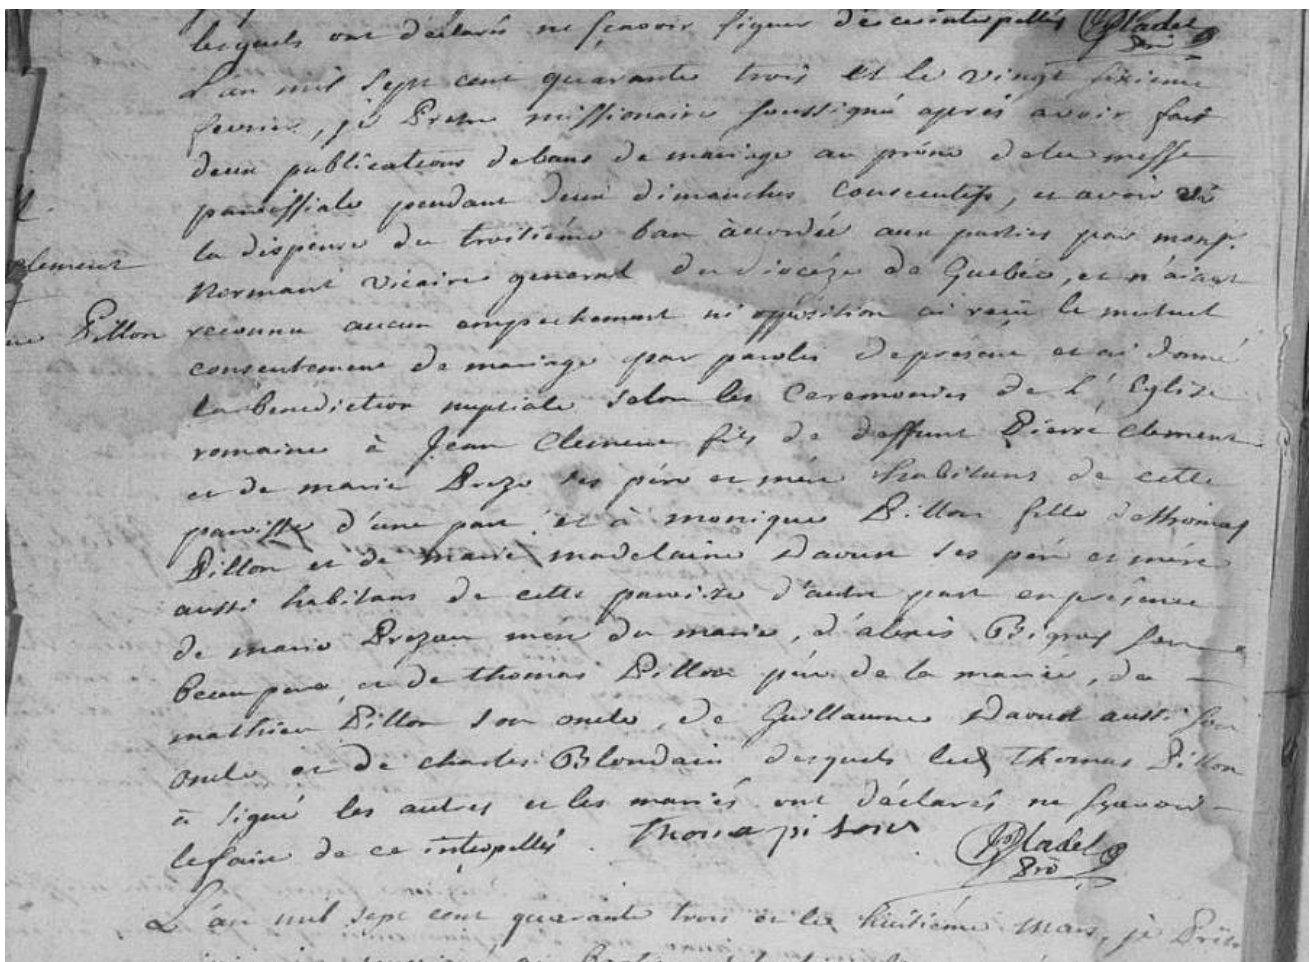 lesquels ont déclaré ne sçavoir signer de ce interpellés
Pladel
Prê
L'an mil sept cent quarante trois et le vingt sixieme
fevrier, je Pretre missionaire soussigné aprés avoir fait
deux publications de bans de mariage au prône de la messe
paroissiale pendant deux dimanches consecutifs, et avoir vû
la dispense du troisiéme ban accordée aux parties par monsr.
Normant Vicaire general du diocéze de Quebec, et n'aiant
clement
reconnu aucun empechement ni oppôsition ai reçu le mutuel
Pillon
consentement de mariage par paroles de present et ai donné
la benediction nuptiale selon les Ceremonies de L'Eglise
romaine à Jean Clement fils de deffunt Pierre Clement
et de marie Prezo ses pére et mére habitans de cette
paroisse d'une part et à monique Pillon fille de thomas
Pillon et de marie madelaine Daoust ses pére et mére
aussi habitans de cette paroisse d'autre part en présence
de marie Prezau mere du marié, d'alexis Bigras son
beau pere, et de thomas Pillon pére de la mariée, de
mathieu Pillon son oncle, de Guillaume Daoust aussi son
oncle et de charles Blondain desquels led Thomas Pillon
a signé les autres et les mariés ont déclarés ne sçavoir
le faire de ce interpellés. Thoma pilon
Pladel
Prê
L'an mil sept cent quarante trois et le huitiéme Mars, je Prêtre